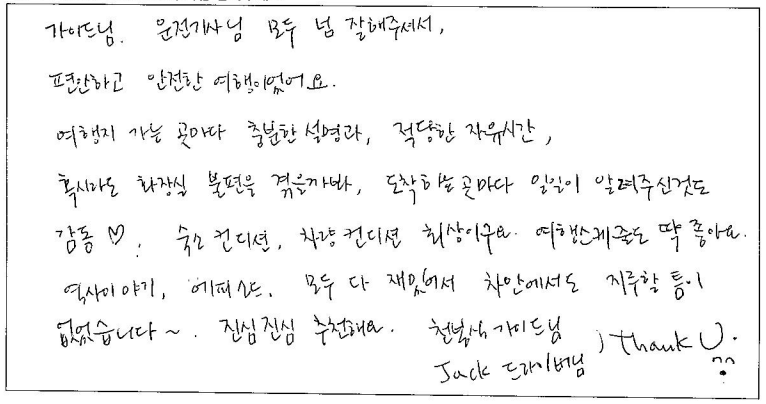 가이드님. 운전기사님 모두 넘 잘해주셔서,
편안하고 안전한 여행이었어요.
여행지 가는 곳마다 충분한 설명과, 적당한 자유시간,
혹시라도 화장실 불편을 겪을까봐, 도착하는곳마다 일일이 알려주신것도
감동♡. 숙소컨디션, 차량컨디션 최상이구요. 여행스케줄도 딱 좋아요.
역사이야기, 에피소드, 모두 다 재밌어서 차안에서도 지루할 틈이
없었습니다~. 진심진심 추천해요. 가이드님
Jack 드라이버님 ) Thank U.